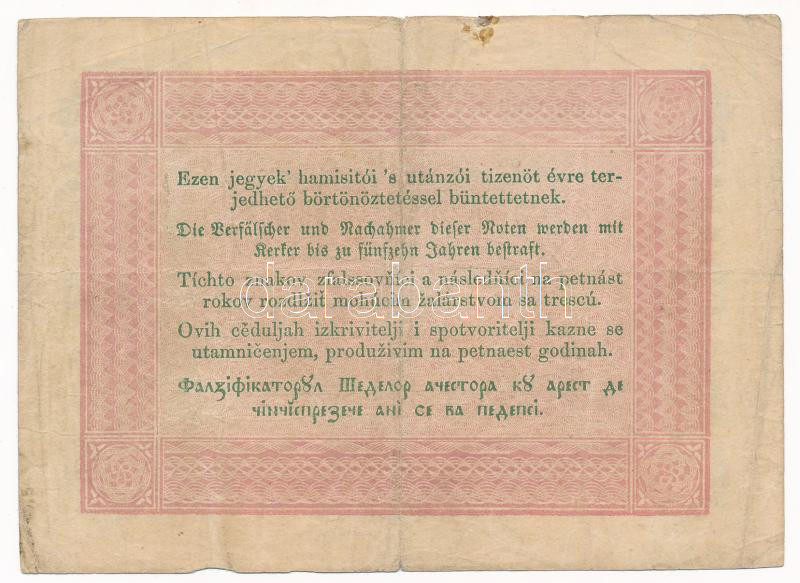 Ezen jegyek' hamisitói 's utánzói tizenöt évre ter-
jedhető börtönöztetéssel büntettetnek.
Die Verfälscher und Nachahmer dieser Noten werden mit
Kerker bis zu fünfzehn Jahren bestraft.
Tíchto znakov zfalssovňíci a následňíci na petnást
rokov rozdlžiť mohúcim žalárstvom sa trescú.
darabanth
Ovih cěduljah izkrivitelji i spotvoritelji kazne se
utamničenjem, produživim na petnaest godinah.
Фалꙃіфікаторꙋл Шеделор ачестора кꙋ арест де
чінчіспреꙃече ані се ва педепсі.